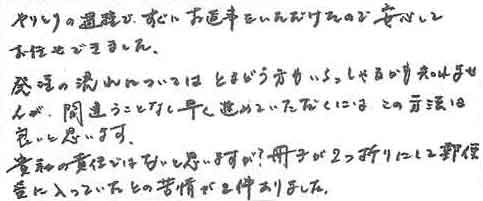 やりとりの過程で、すぐにお返事をいただけたので安心して
お任せできました。
発注の流れについてはとまどう方もいらっしゃるかも知れませ
んが、間違うことなく早く進めていただくにはこの方法は
良いと思います。
貴社の責任ではないと思いますが?冊子が2つ折りにして郵便
受に入っていたとの苦情が2件ありました。